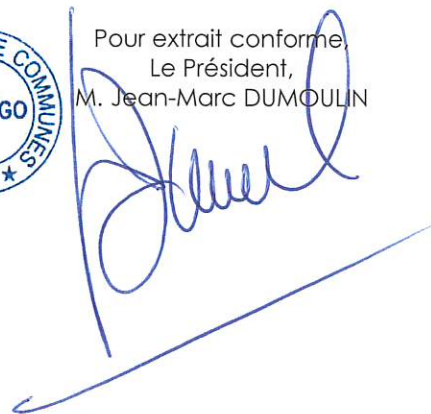 Pour extrait conforme,
Le Président,
M. Jean-Marc DUMOULIN
COMMUNES ★
GO